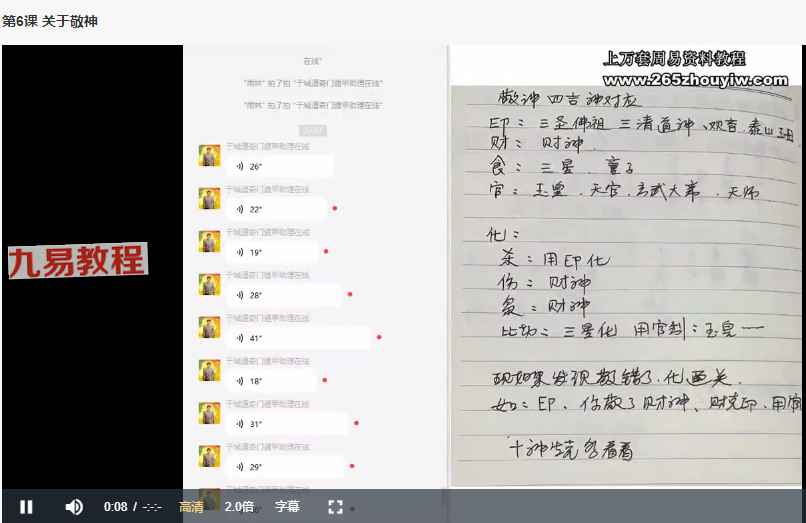 第6课 关于敬神
在线"
"雨林" 拍了拍 "于城遁奇门遁甲助理在线"
"雨林" 拍了拍 "于城遁奇门遁甲助理在线"
于城遁奇门遁甲助理在线
26"
于城遁奇门遁甲助理在线
22"
于城遁奇门遁甲助理在线
19"
于城遁奇门遁甲助理在线
28"
于城遁奇门遁甲助理在线
41"
于城遁奇门遁甲助理在线
18"
于城遁奇门遁甲助理在线
31"
于城遁奇门遁甲助理在线
29"
九易教程
上万套周易资料教程
www.265zhouyiw.com
敬神 四吉神对应
印: 三圣佛祖 三清道神、观音.泰山
财: 财神.
食: 三星. 童子
官: 玉皇. 天官.玄武大帝. 天师
化:
杀: 用印化
伤: 财神
枭: 财神
比劫: 三星化 用官制: 玉皇一一
现如果发现敬错了.化
如: 印. 你敬了财神、财克印.用官
十神生克多看看
0:08 / -:-:-
高清
2.0倍
字幕